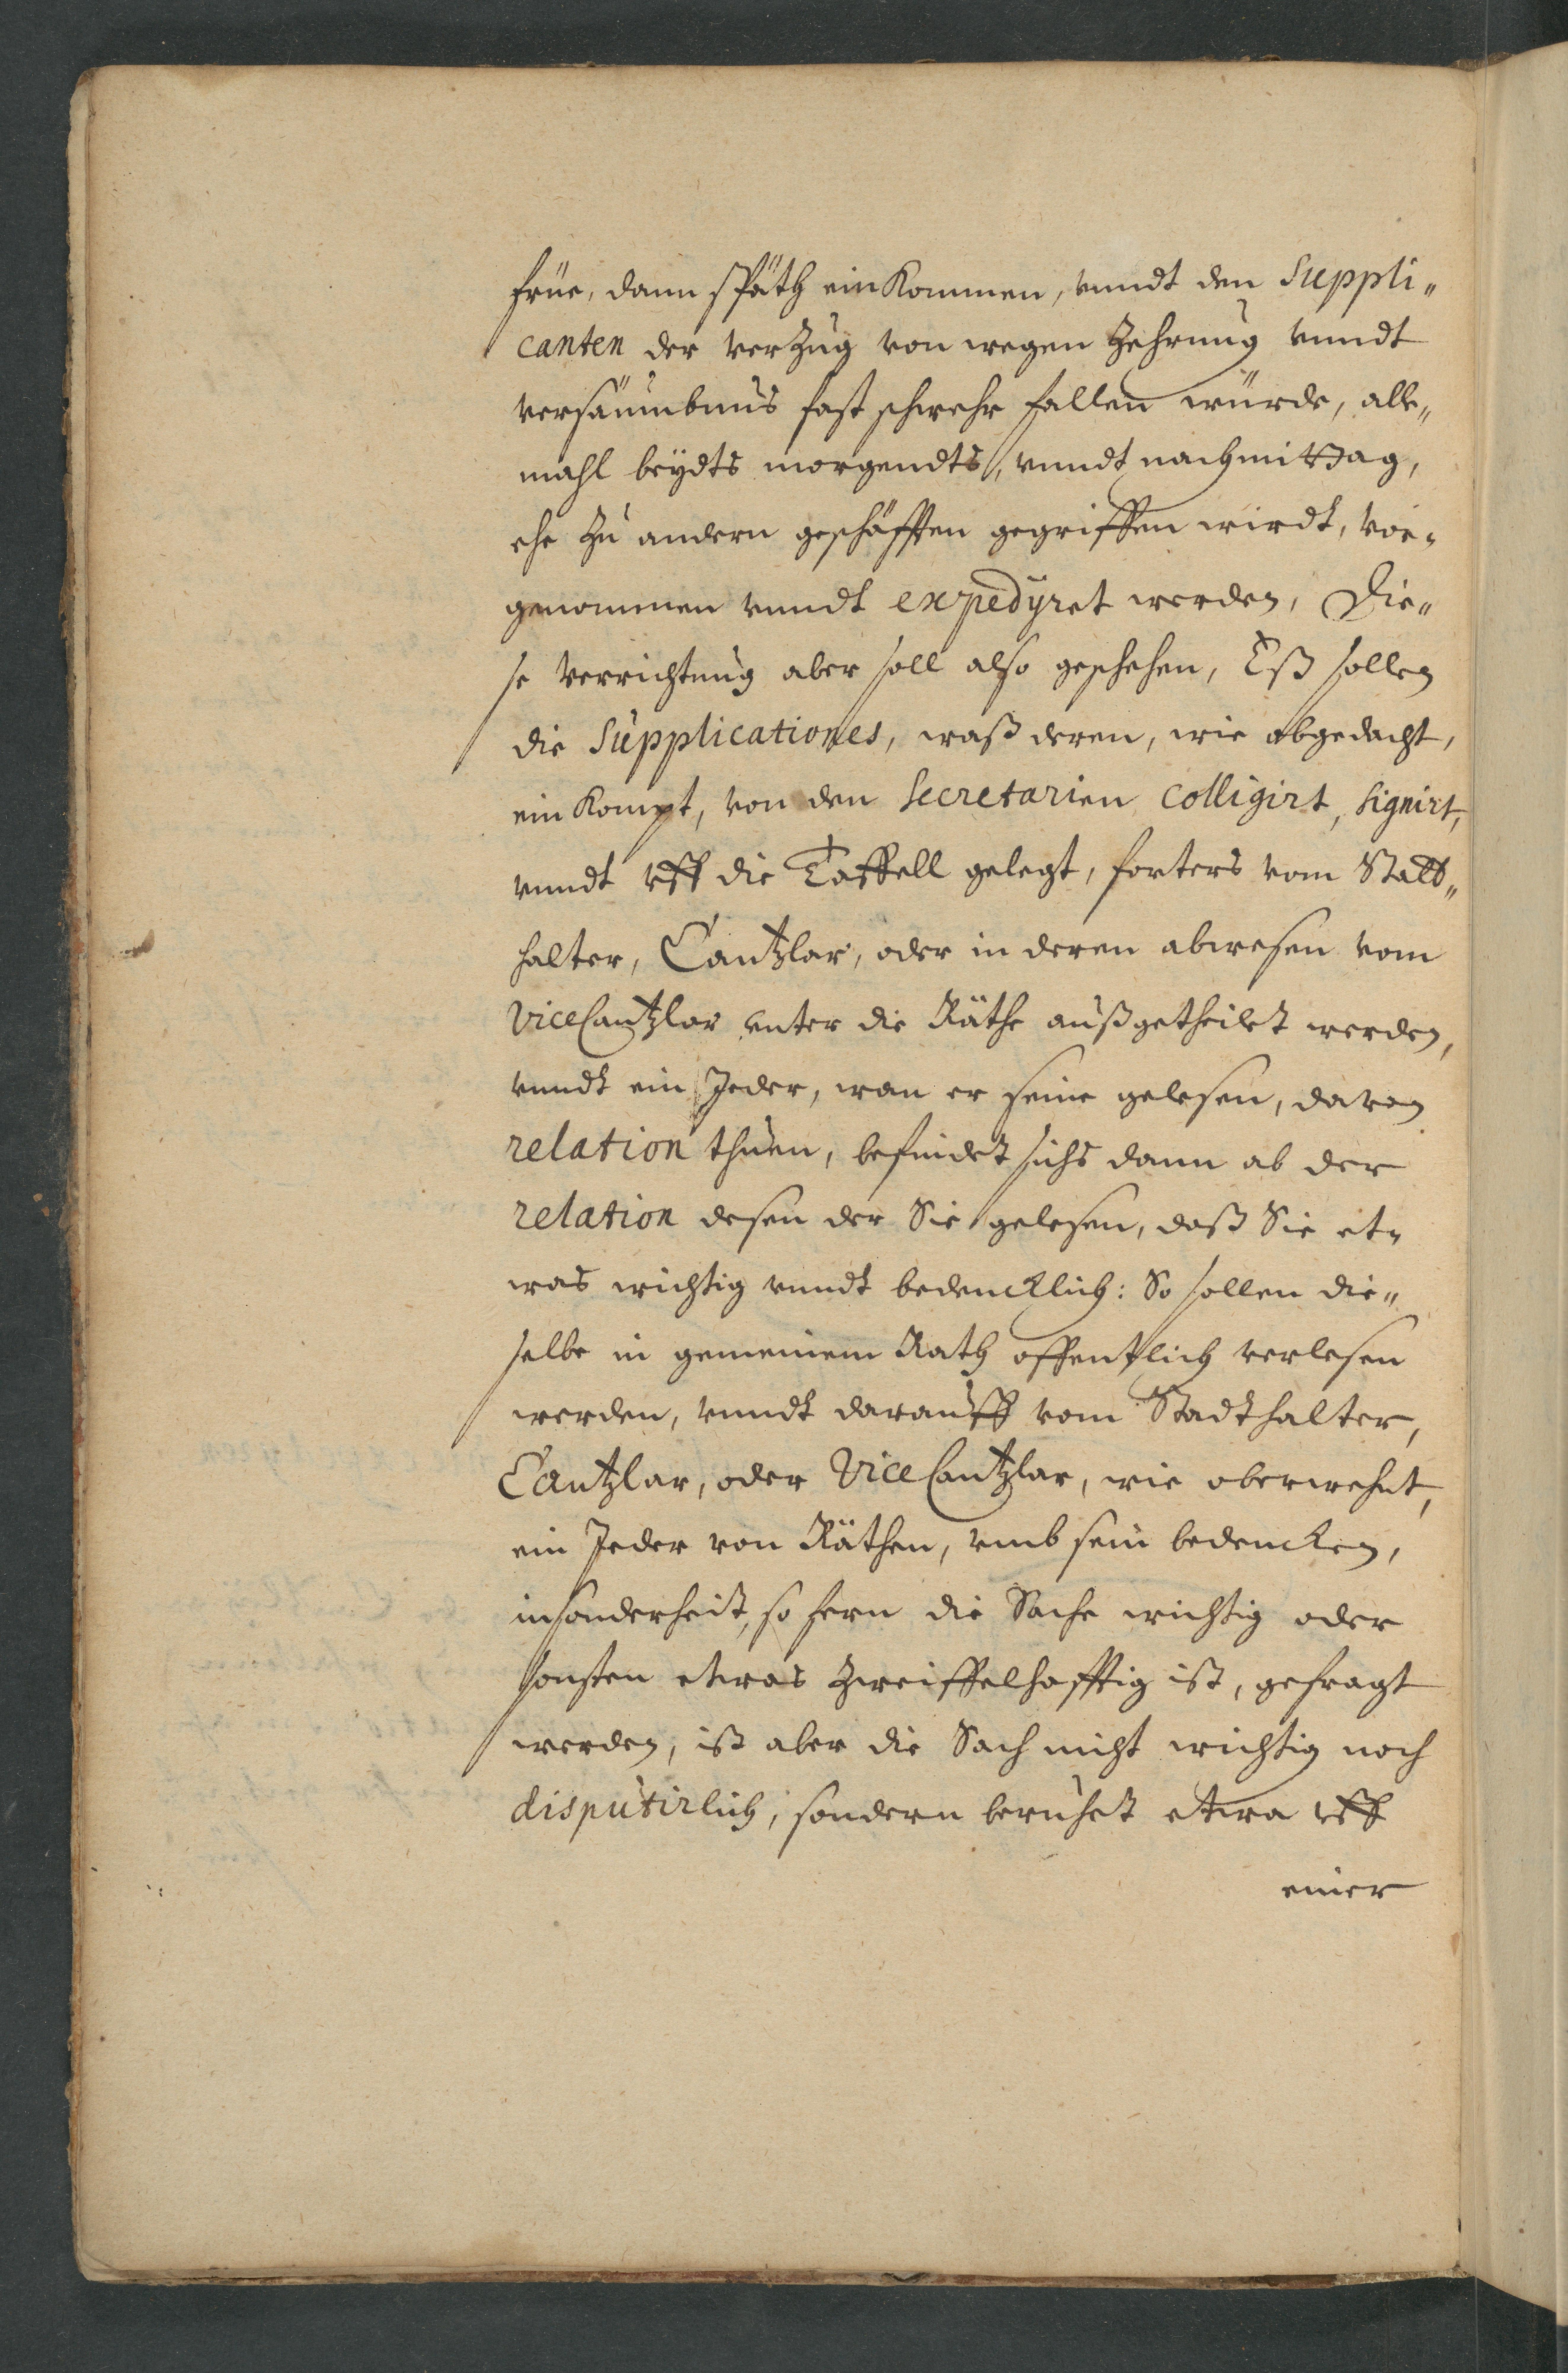 früe, dann späth einkommen, vnndt den Suppli„
canten der verzug von wegen Zehrung vnndt
versäumbnus fast schwehr fallen würde, alle„
mahl beydts morgendts, vnndt nachmittag,
ehe zu andern geschäfften gegriffen wirdt, vor„
genommen vnndt expedyret werden, Die„
se verrichtung aber soll also geschehen, Eß sollen
die Supplicationes, waß deren, wie obgedacht,
einkompt, von den Secretarien Colligirt, signirt,
vnndt vff die Taffell gelegt, forters vom Statt„
halter, Cantzlar, oder in deren abwesen vom
ViceCantzlar vnter die Räthe außgetheilet werden,
vnndt ein Jeder, wan er seine gelesen, davon
relation thuen, befindet sichs dann ab der
relation desen der Sie gelesen, daß Sie et„
was wichtig vnndt bedencklich: So sollen die„
selbe in gemeinem Rath offentlich verlesen
werden, vnndt darauff vom Stadthalter,
Cantzlar, oder ViceCantzlar, wie oberwehnt,
ein Jeder von Räthen, vmb sein bedencken,
insonderheit, so fern die Sache wichtig oder
sonsten etwas zweiffelhafftig ist, gefragt
werden, ist aber die Sach nicht wichtig noch
disputirlich, sondern beruhet etwa vff
einer